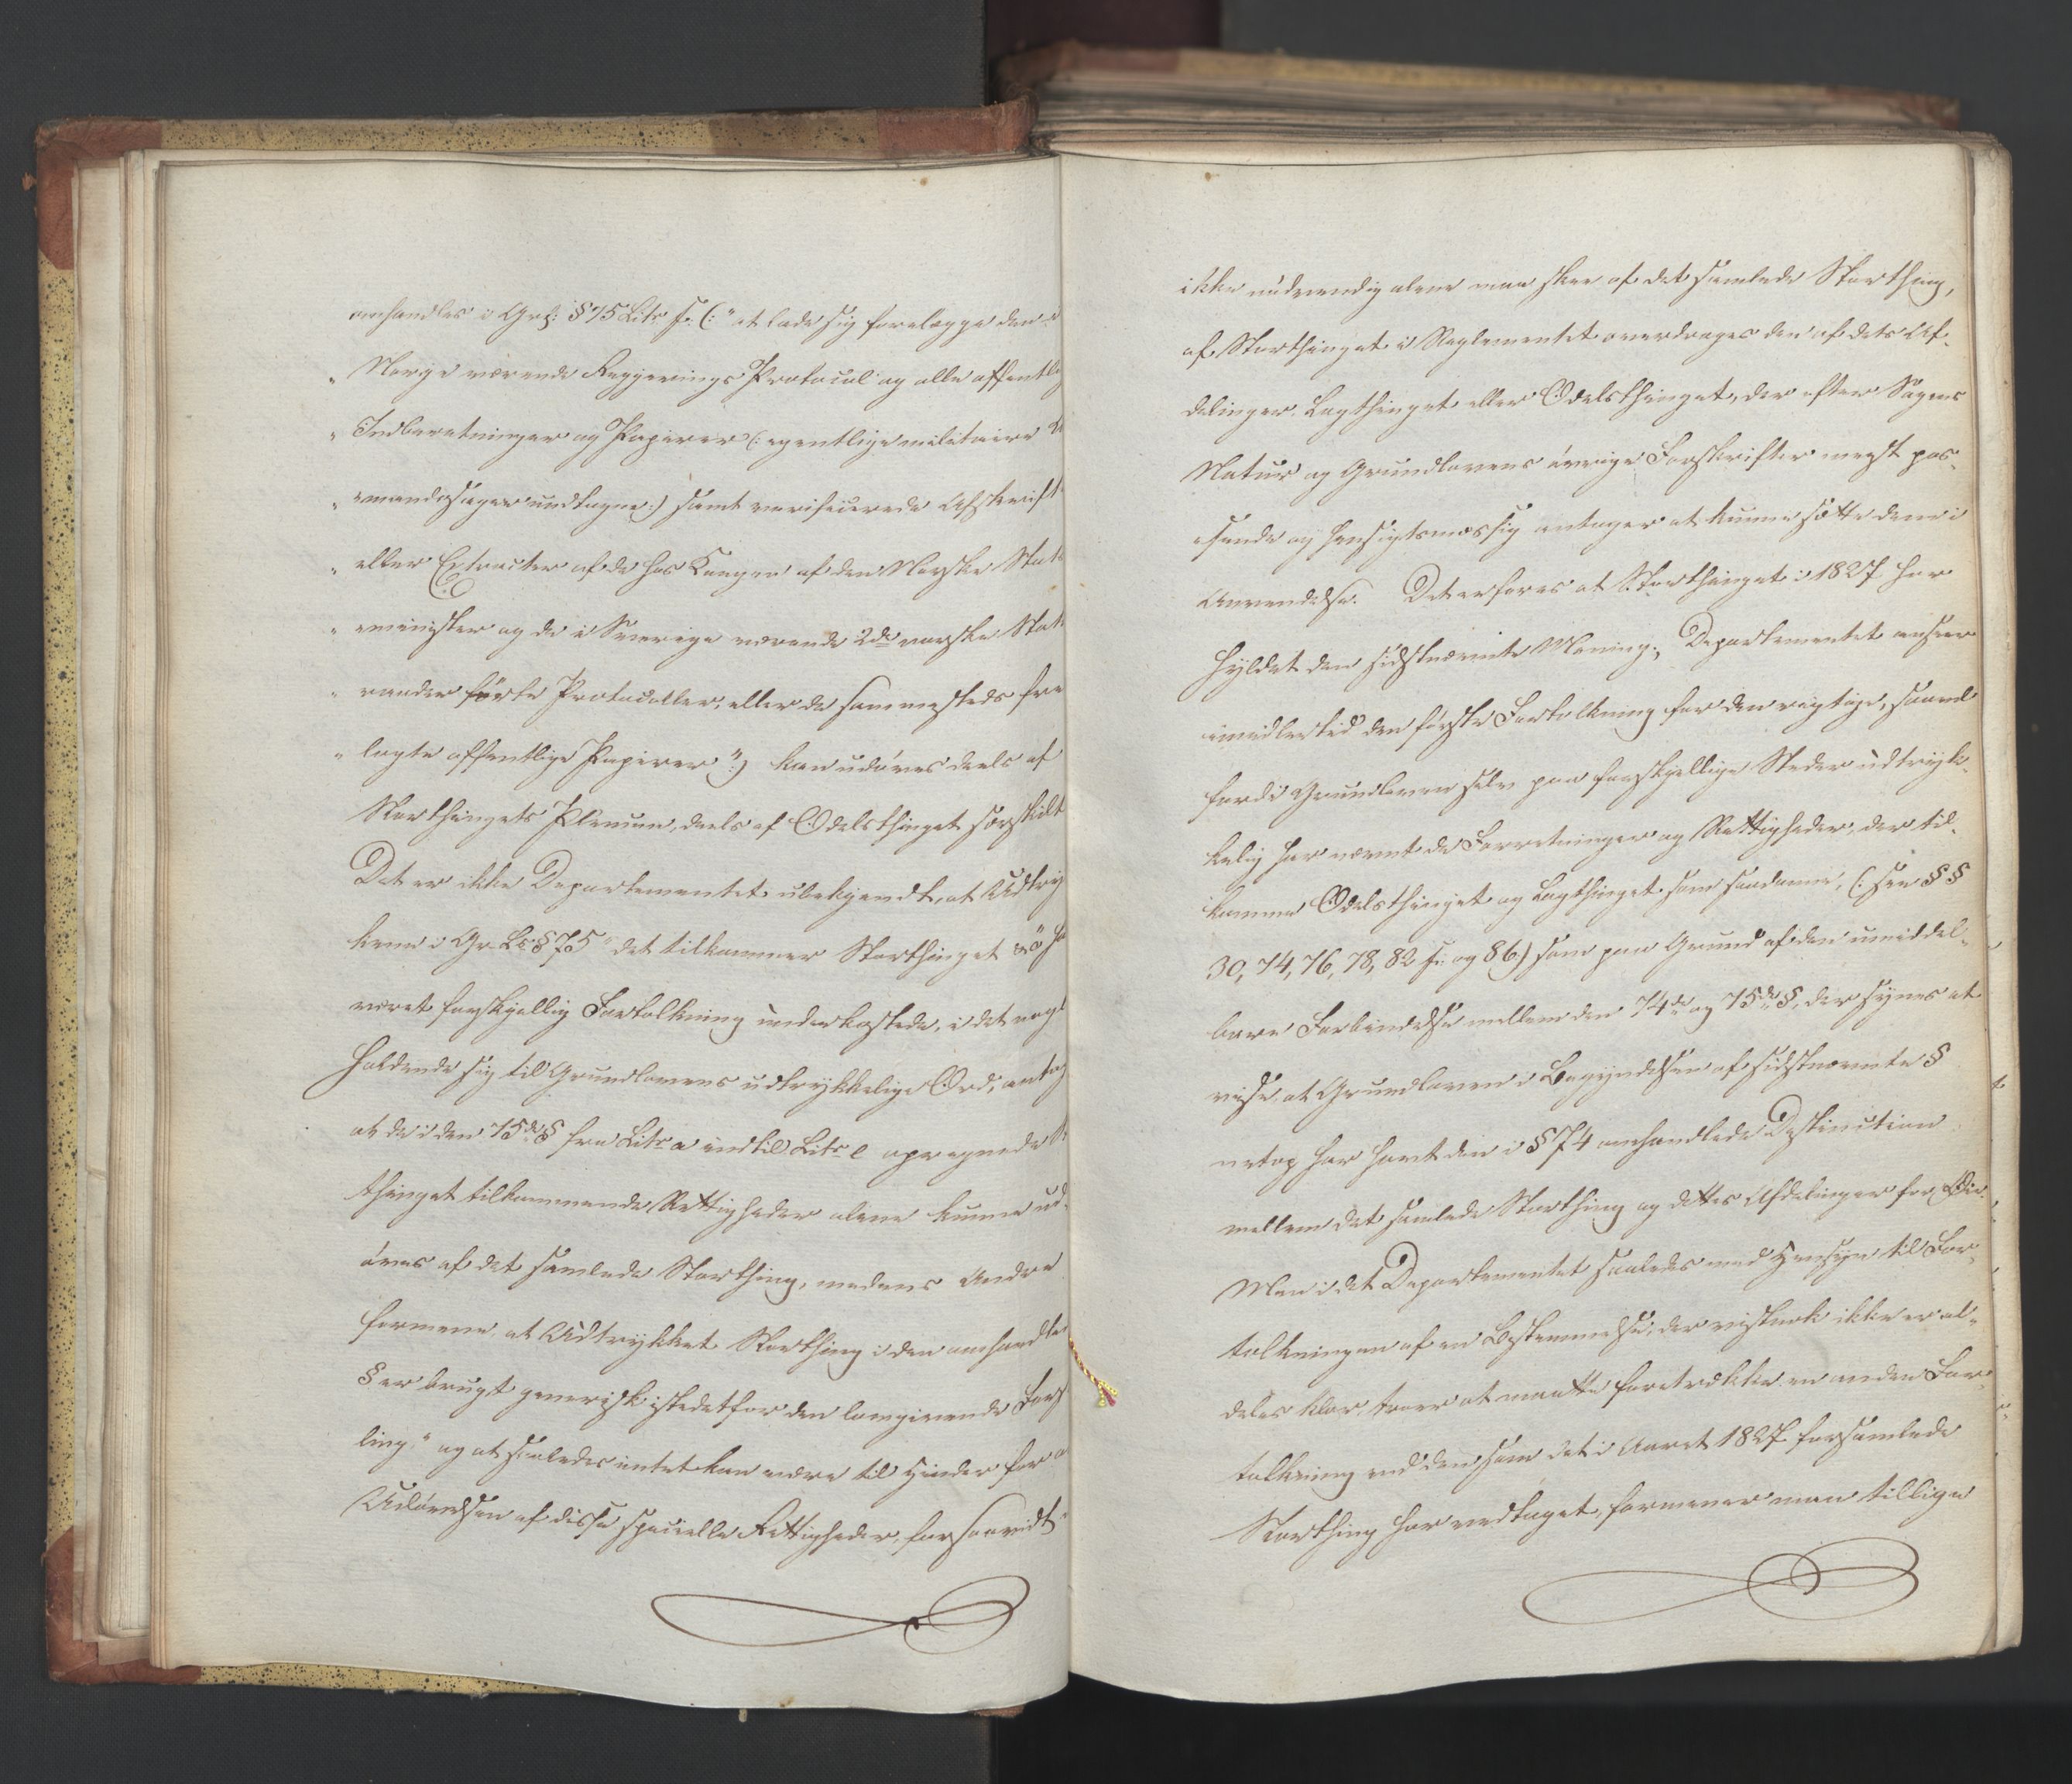 omhandles i Grl: § 75 Litr f. (: "at lade sig forelægge den i
" Norge værende Regjerings Protocol og alle offentlig
" Indberetninger og Papirer (: egentlige militaire
" mandosager undtagne:) samt verificerede Afskrift
" eller Extracter af de hos Kongen af den Norske Stats
" minister og de i Sverige værende 2de norske Stats
" raader førte Protocoller, eller de sammesteds fre
" lagte offentlige Papirer":) kan udøves deels af
Storthingets Plenum, deels af Odelsthinget særskilt
Det er ikke Departementet ubekjendt, at Udtryk
kene i Gr. Ls § 75 "det tilkommer Storthinget &" ha
været forskjellig Fortolkning underkastede, i det nogl
holdende sig til Grundlovens udtrykkelige Ord, antog
at de i den 75de § fra Litr a indtil Litr l opregnede St
thinget tilkommende Rettigheder alene kunne ud-
øves af det samlede Storthing, medens Andre
formene, at Udtrykket Storthing i den omhandle
§ er brugt generisk istedetfor den lovgivende Fors
ling," og at saaledes intet kan være til Hinder for a
Udøvelsen af disse specielle Rettigheder, forsaavidt
ikke nødvendig alene maa skee af det samlede Storthing,
af Storthinget i Reglementet overdrages den af dets Af-
delinger, Lagthinget eller Odelsthinget, der efter Sagens
Natur og Grundlovens øvrige Forskrifter mest pas-
sende og hensigtsmæssig antages at kunne sætte dem i
Anvendelse. Det erfares at Storthinget i 1827 har
hyldet den sidstnævnte Mening; Departementet anseer
imidlertid den første Fortolkning for den rigtige, saavel
fordi Grundloven selv paa forskjellige Steder udtryk-
kelig har nævnt de Forretninger og Rettigheder, der til-
komme Odelsthinget og Lagthinget som saadanne, (: see §§
30, 74, 76, 78, 82 f. og 86:) som paa Grund af den umiddel-
bare Forbindelse mellem den 74de og 75de §, der synes at
vise, at Grundloven i Begyndelsen af sidstnævnte §
netop har havt den i § 74 omhandlede Distinction
mellem det samlede Storthing og dettes Afdelinger for Øie.
Men i det Departementet saaledes med Hensyn til For-
tolkningen af en Bestemmelse, der vistnok ikke er al-
deles klar, troer at maatte foretrække en anden For-
tolkning end den, som det i Aaret 1827 forsamlede
Storthing har vedtaget, formener man tillige